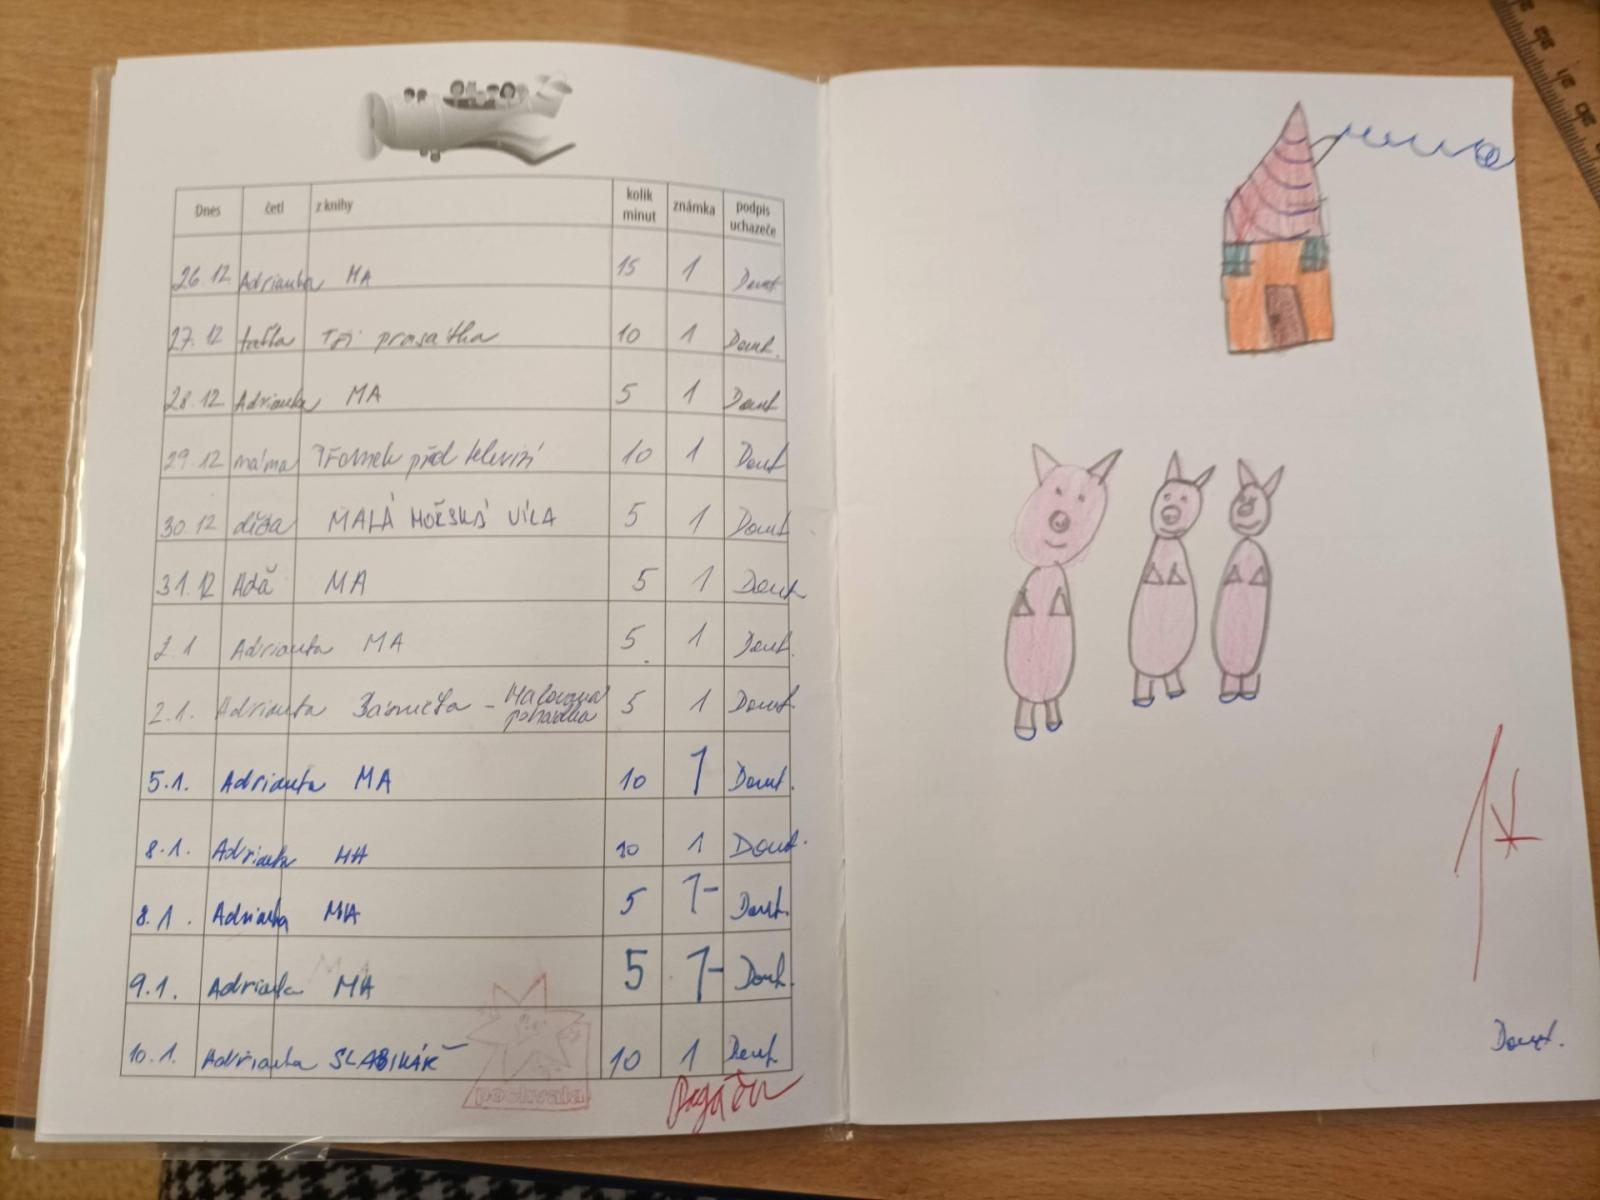 Dnes četl z knihy kolik minut známka podpis uchazeče
26.12 Adrianka MA 15 1 Dout.
27.12 taťka Tři prasátka 10 1 Dout.
28.12 Adrianka MA 5 1 Dout
29.12 máma před televizí 10 1 Dout
30.12 MALÁ MOŘSKÁ VÍLA 5 1 Dout
31.12 MA 5 1 Dout
2.1 Adrianka MA 5 1 Dout.
2.1. Adrianka Básnička - Malovaná pohádka 5 1 Dout.
5.1. Adrianka MA 10 1 Dout.
8.1. Adrianka MA 10 1 Dout.
8.1. Adrianka MA 5 1- Dout.
9.1. Adrianka MA 5 1- Dout.
10.1. Adrianka SLABIKÁŘ 10 1 Dout
pochvala
1*
Dout.